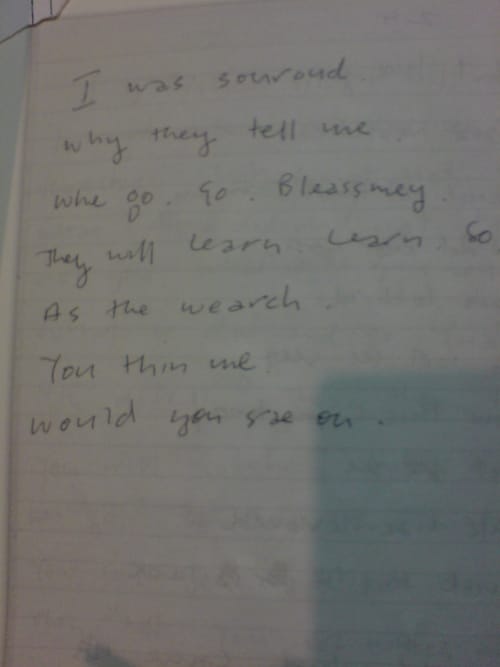 I was souroud.
Why they tell me.
Whe go. Go. Bleassmey.
They will learn. Learn. So
As the wearch.
You thin me.
Would you sae on.